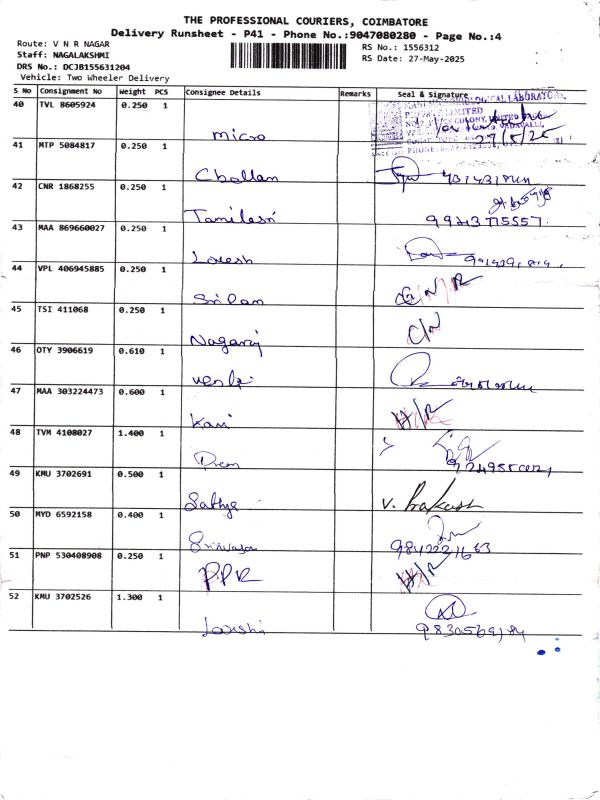 THE PROFESSIONAL COURIERS, COIMBATORE
Delivery Runsheet - P41 - Phone No.:9047080280 - Page No.:4
Route: V N R NAGAR
Staff: NAGALAKSHMI
DRS No.: DCJB155631204
Vehicle: Two Wheeler Delivery
RS No.: 1556312
RS Date: 27-May-2025
S No Consignment No Weight PCS Consignee Details Remarks Seal & Signature
40 TVL 8605924 0.250 1
micro 27/5/25
41 MTP 5084817 0.250 1
Chellam
42 CNR 1868255 0.250 1
Tamilesri 9943775557.
43 MAA 869660027 0.250 1
Lokesh
44 VPL 406945885 0.250 1
Sri Ram
45 TSI 411068 0.250 1
Nagaraj C/N
46 OTY 3906619 0.610 1
47 MAA 303224473 0.600 1
Kavi H/R
48 TVM 4108027 1.400 1
Prem
49 KMU 3702691 0.500 1
Sathya V. Prakash
50 MYD 6592158 0.400 1
Srinivasan
51 PNP 530408908 0.250 1
PPR H/R
52 KMU 3702526 1.300 1